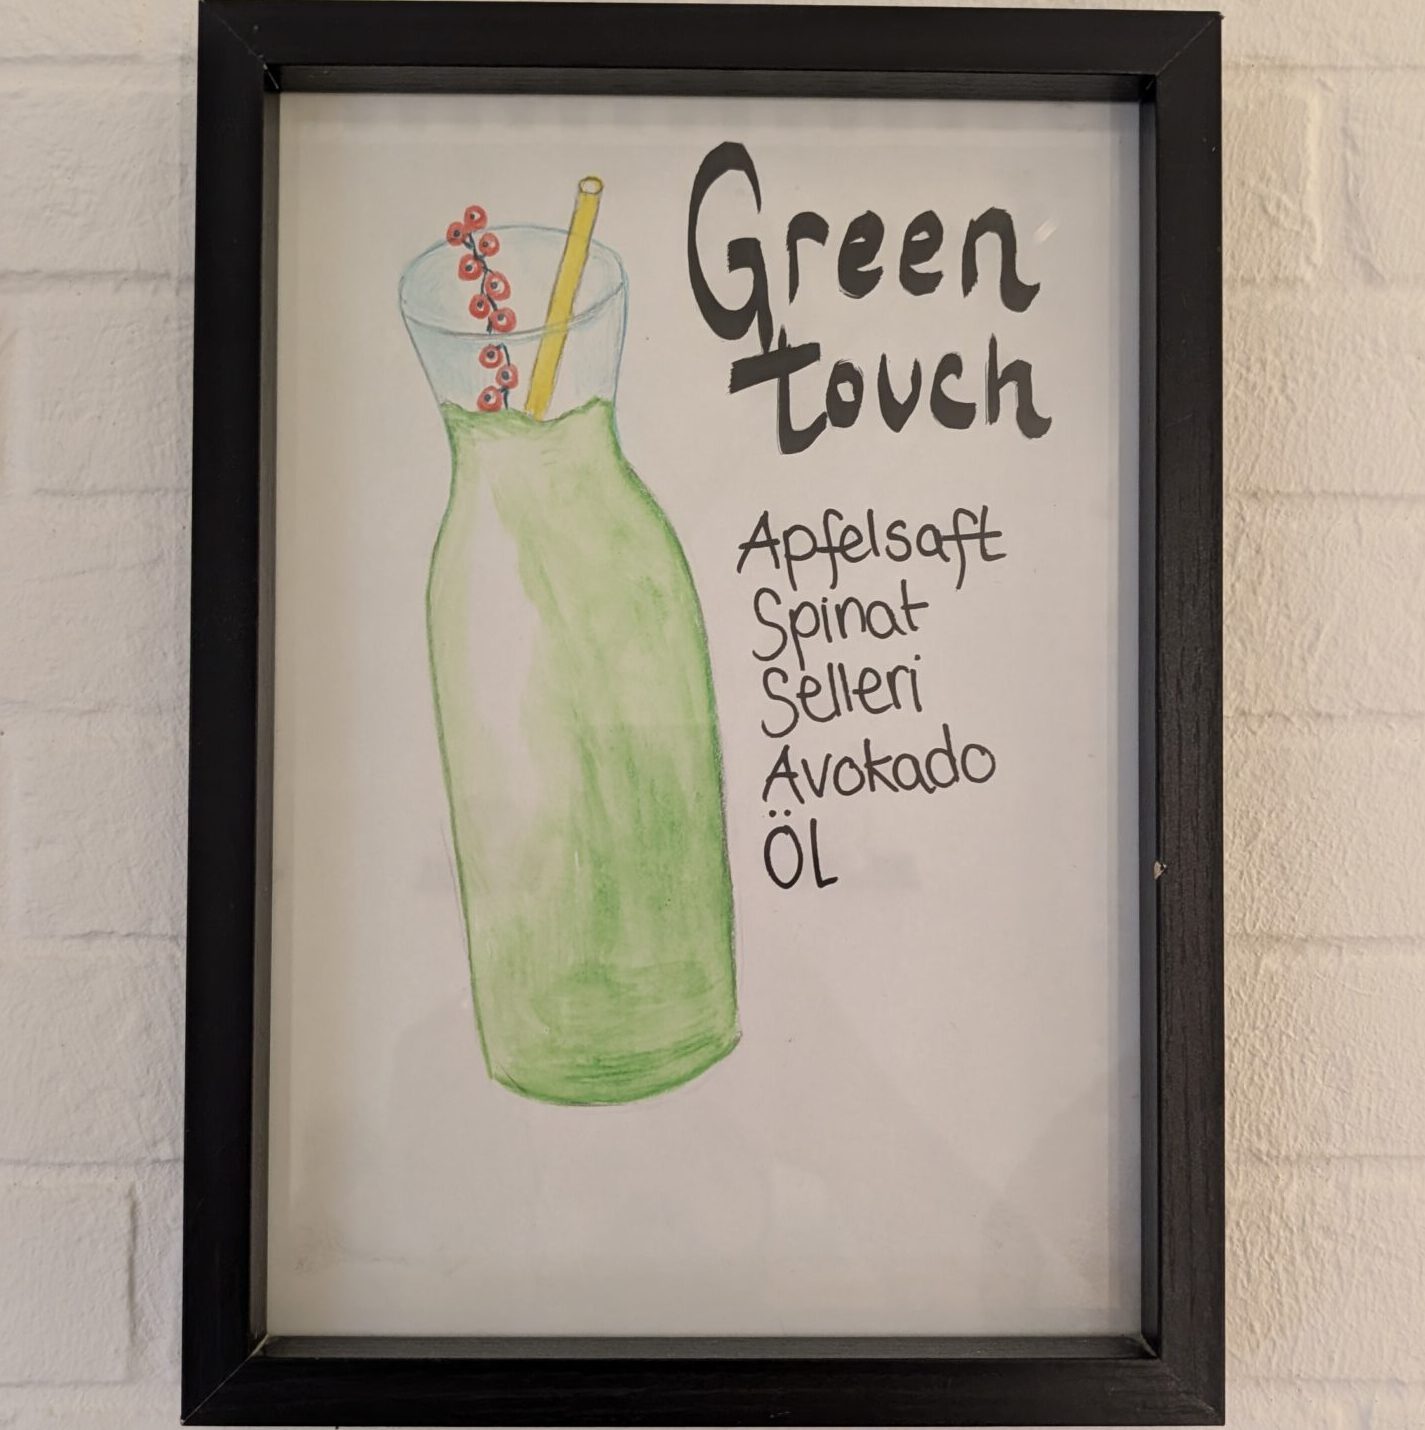 Green
touch
Apfelsaft
Spinat
Selleri
Avokado
ÖL